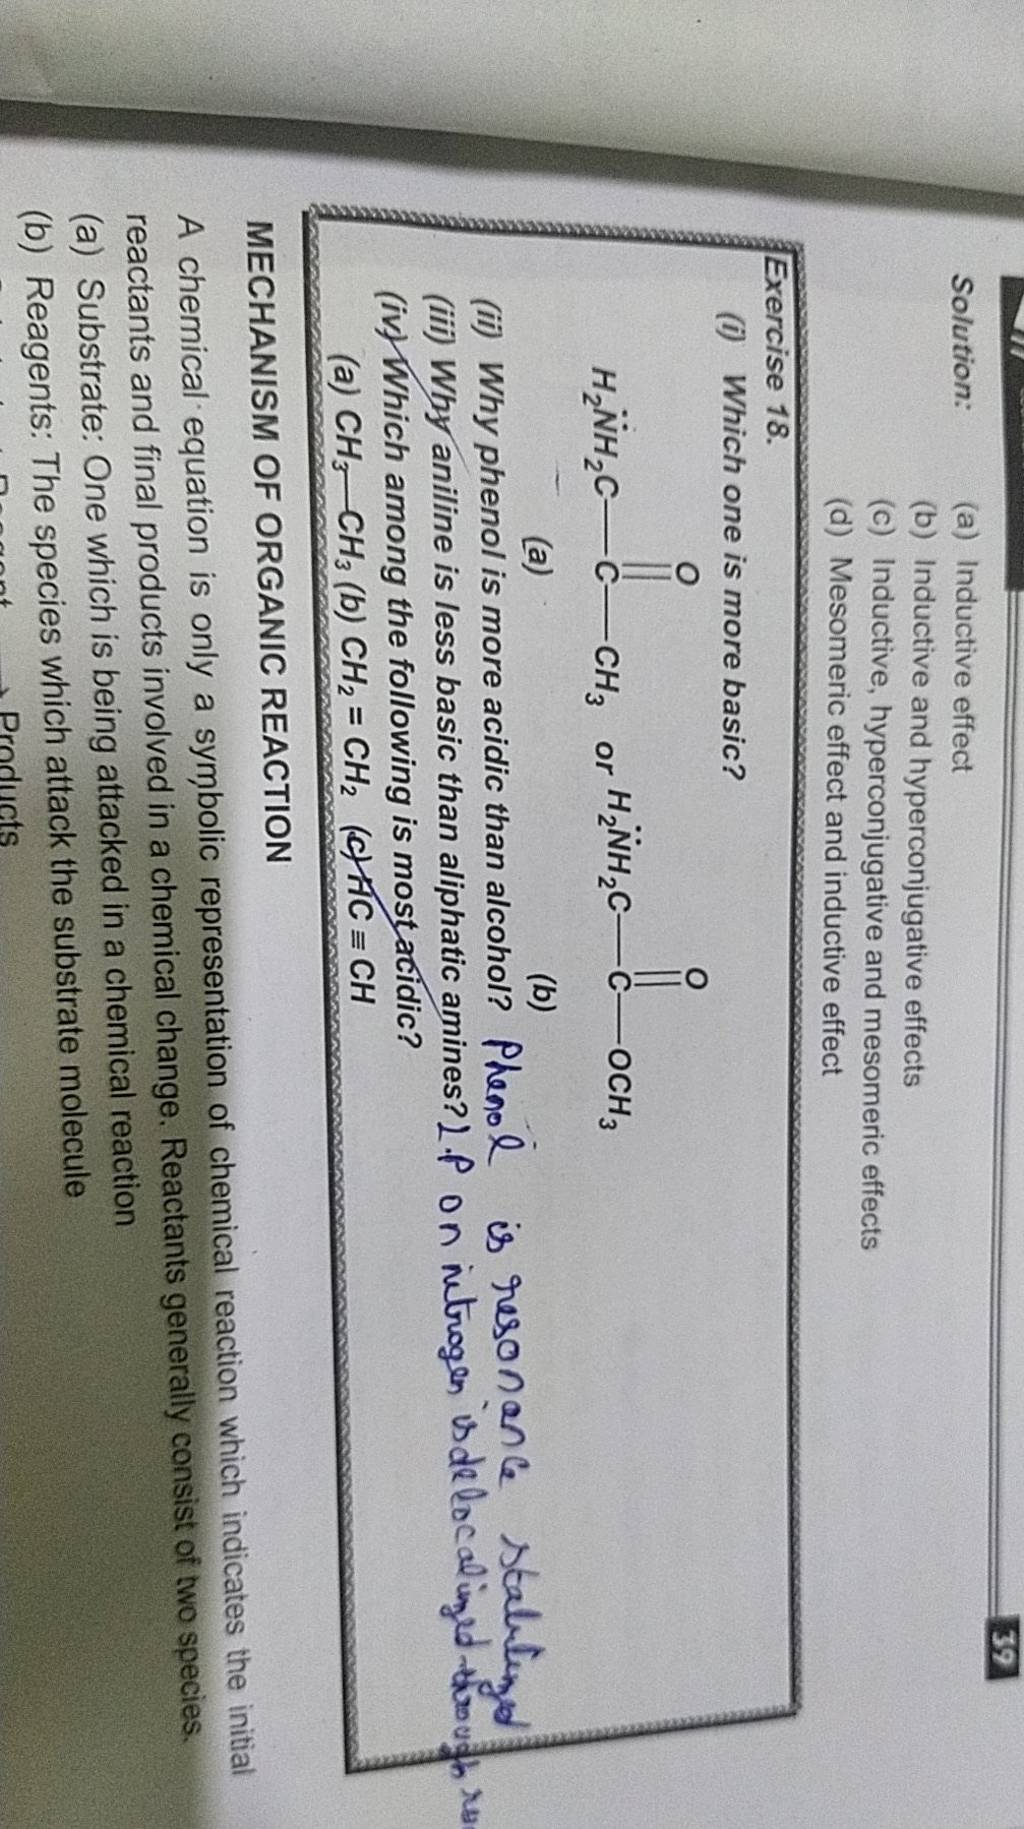 39
Solution: (a) Inductive effect
(b) Inductive and hyperconjugative effects
(c) Inductive, hyperconjugative and mesomeric effects
(d) Mesomeric effect and inductive effect
Exercise 18.
(i) Which one is more basic?
O O
H₂N̈H₂C—C—CH₃ or H₂N̈H₂C—C—OCH₃
(a) (b)
(ii) Why phenol is more acidic than alcohol? Phenol is resonance stabilized
(iii) Why aniline is less basic than aliphatic amines? l.p on nitrogen is delocalized through
(iv) Which among the following is most acidic?
(a) CH₃—CH₃ (b) CH₂ = CH₂ (c) HC ≡ CH
MECHANISM OF ORGANIC REACTION
A chemical equation is only a symbolic representation of chemical reaction which indicates the initial
reactants and final products involved in a chemical change. Reactants generally consist of two species.
(a) Substrate: One which is being attacked in a chemical reaction
(b) Reagents: The species which attack the substrate molecule
Products